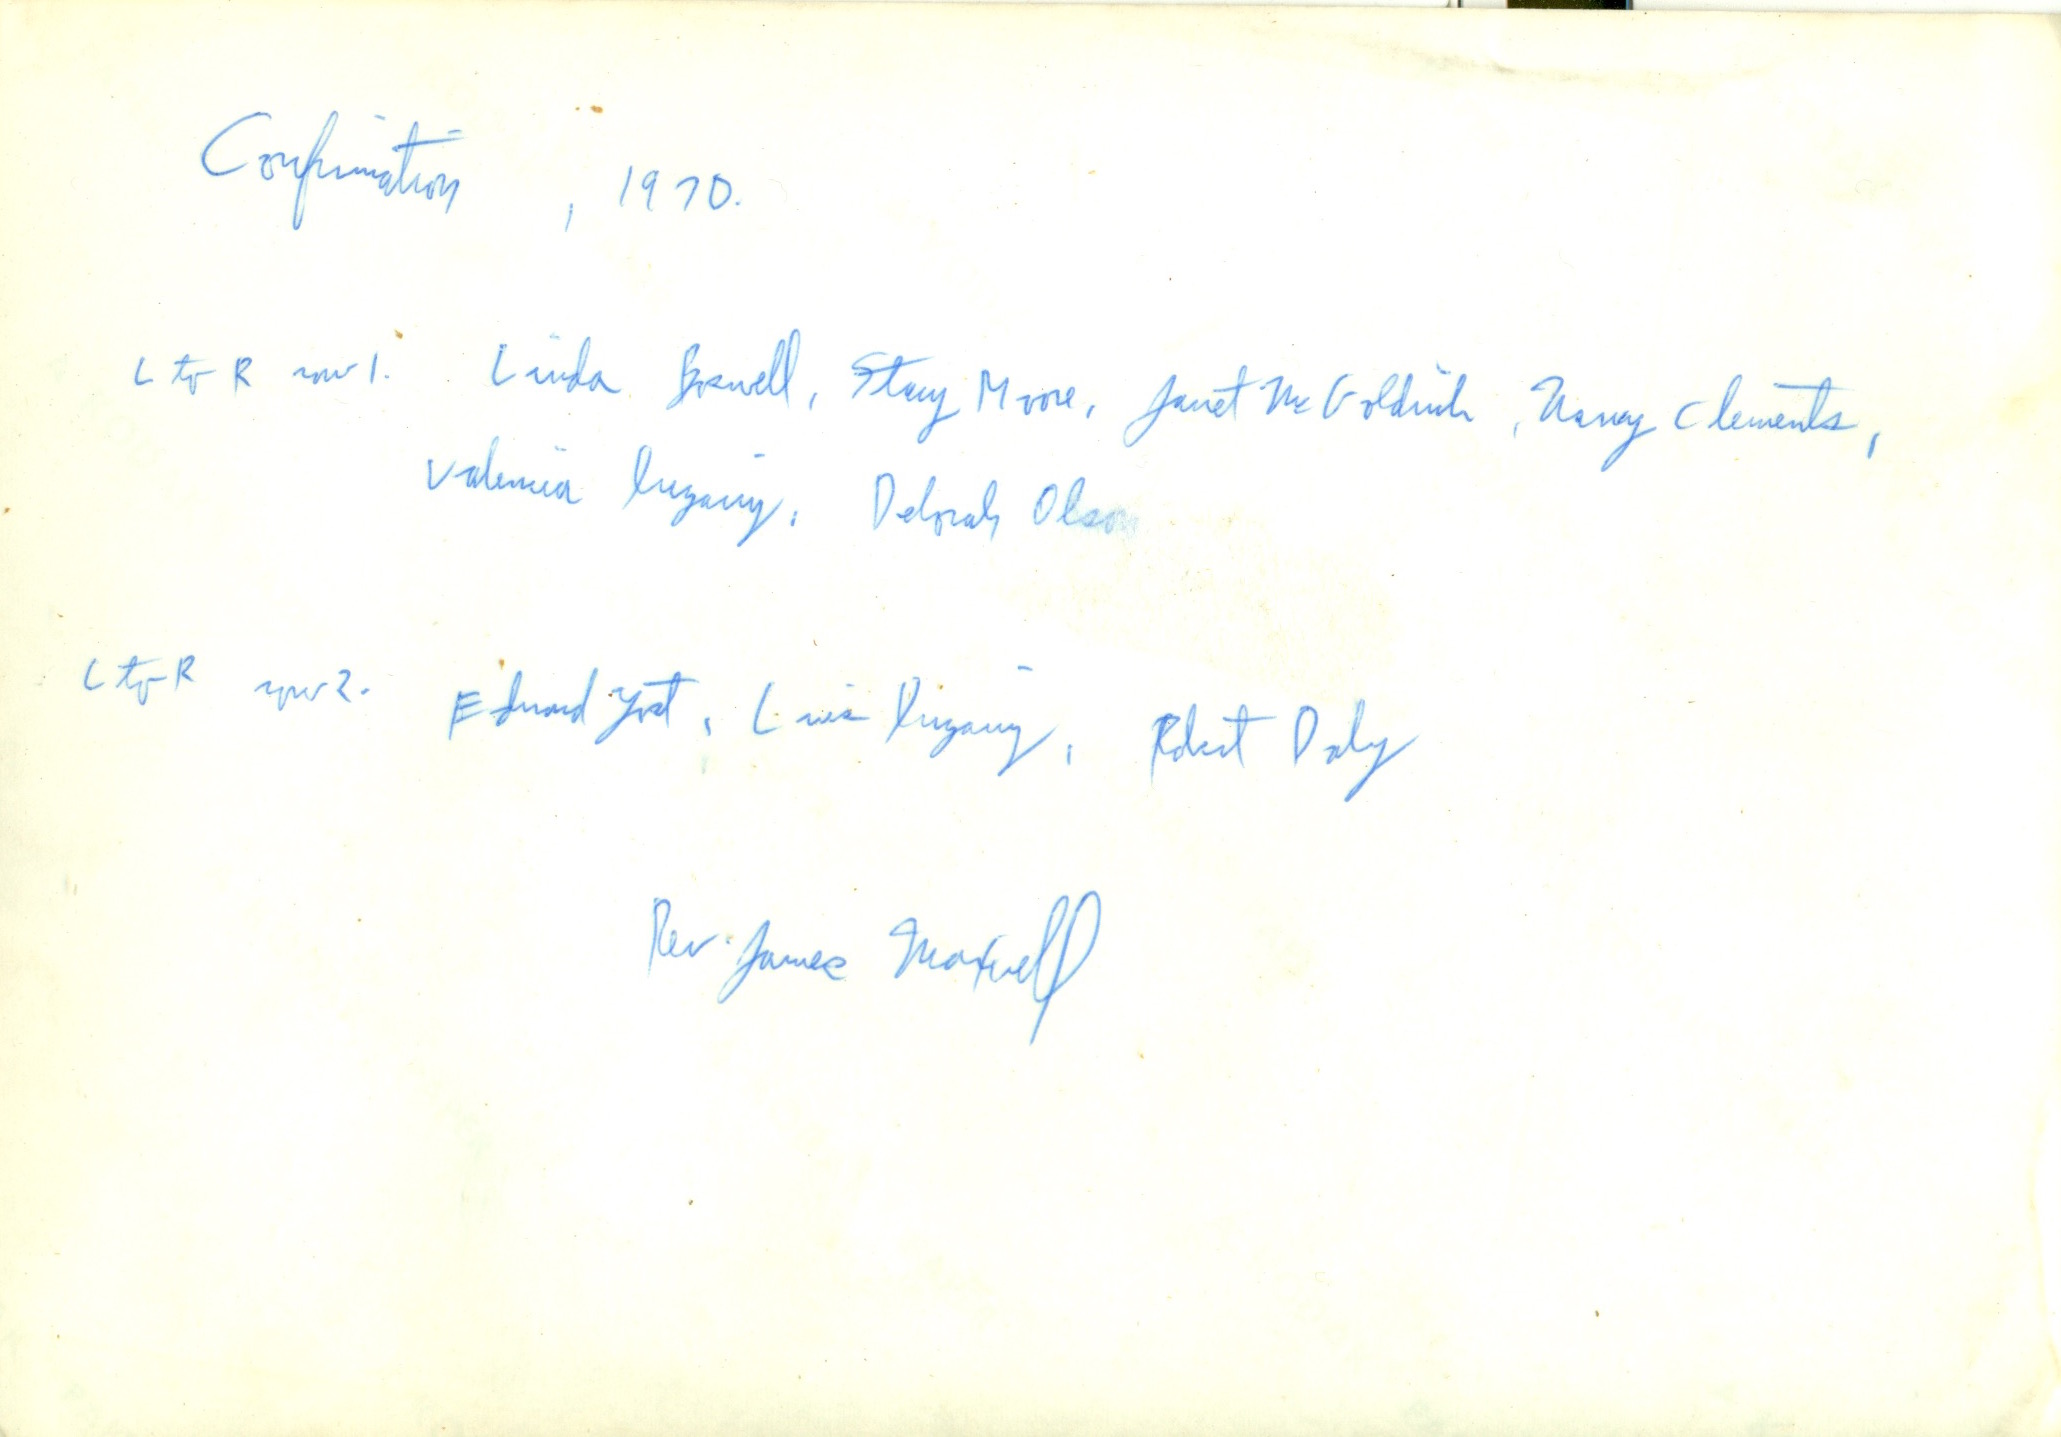 Confirmation , 1970.
L to R row 1. Linda Boswell, Stacy Moore, Janet McGoldrick, Nancy Clements,
Deborah Olson
L to R row 2. Edward Yost, Robert Daly
Rev. James Maxwell